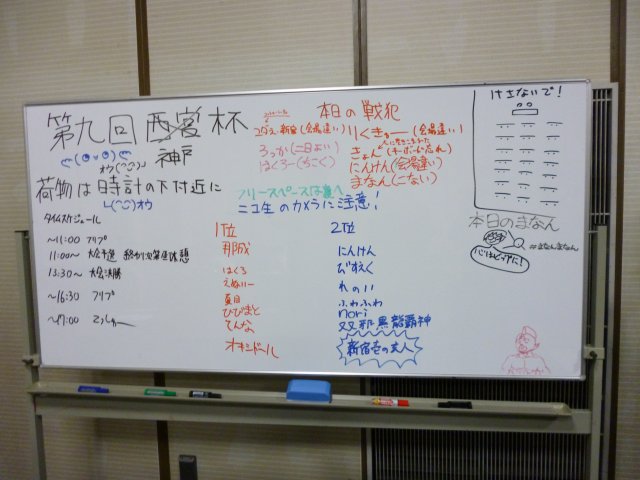 第九回 西宮 杯
神戸
荷物は時計の下付近に
タイムスケジュール
~11:00 フリプ
11:00~ 大会予選
13:30~ 大会決勝
~16:30 フリプ
~17:00
本日の戦犯
新宿(会場違い)
ろっか(二日よい)
はくろー(ちこく)
りくきゅー(会場違い)
きょん(キーボード忘れ)
にんけん(会場違い)
まなん(こない)
フリースペースは奥へ
ニコ生のカメラに注意!
1位
那成
はくろ
えぬりー
夏目
ひびまと
てんなぁ
オキシドール
2位
にんけん
びすえく
れのん
ふわふわ
nori
双邪黒龍覇神
新宿壱の玄人
けさないで!
本日のまなん
#まなんまなん
心はピュアに!